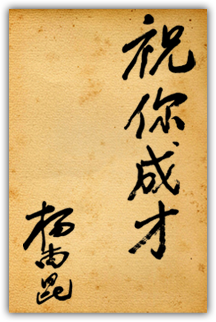 祝你成才
杨尚昆